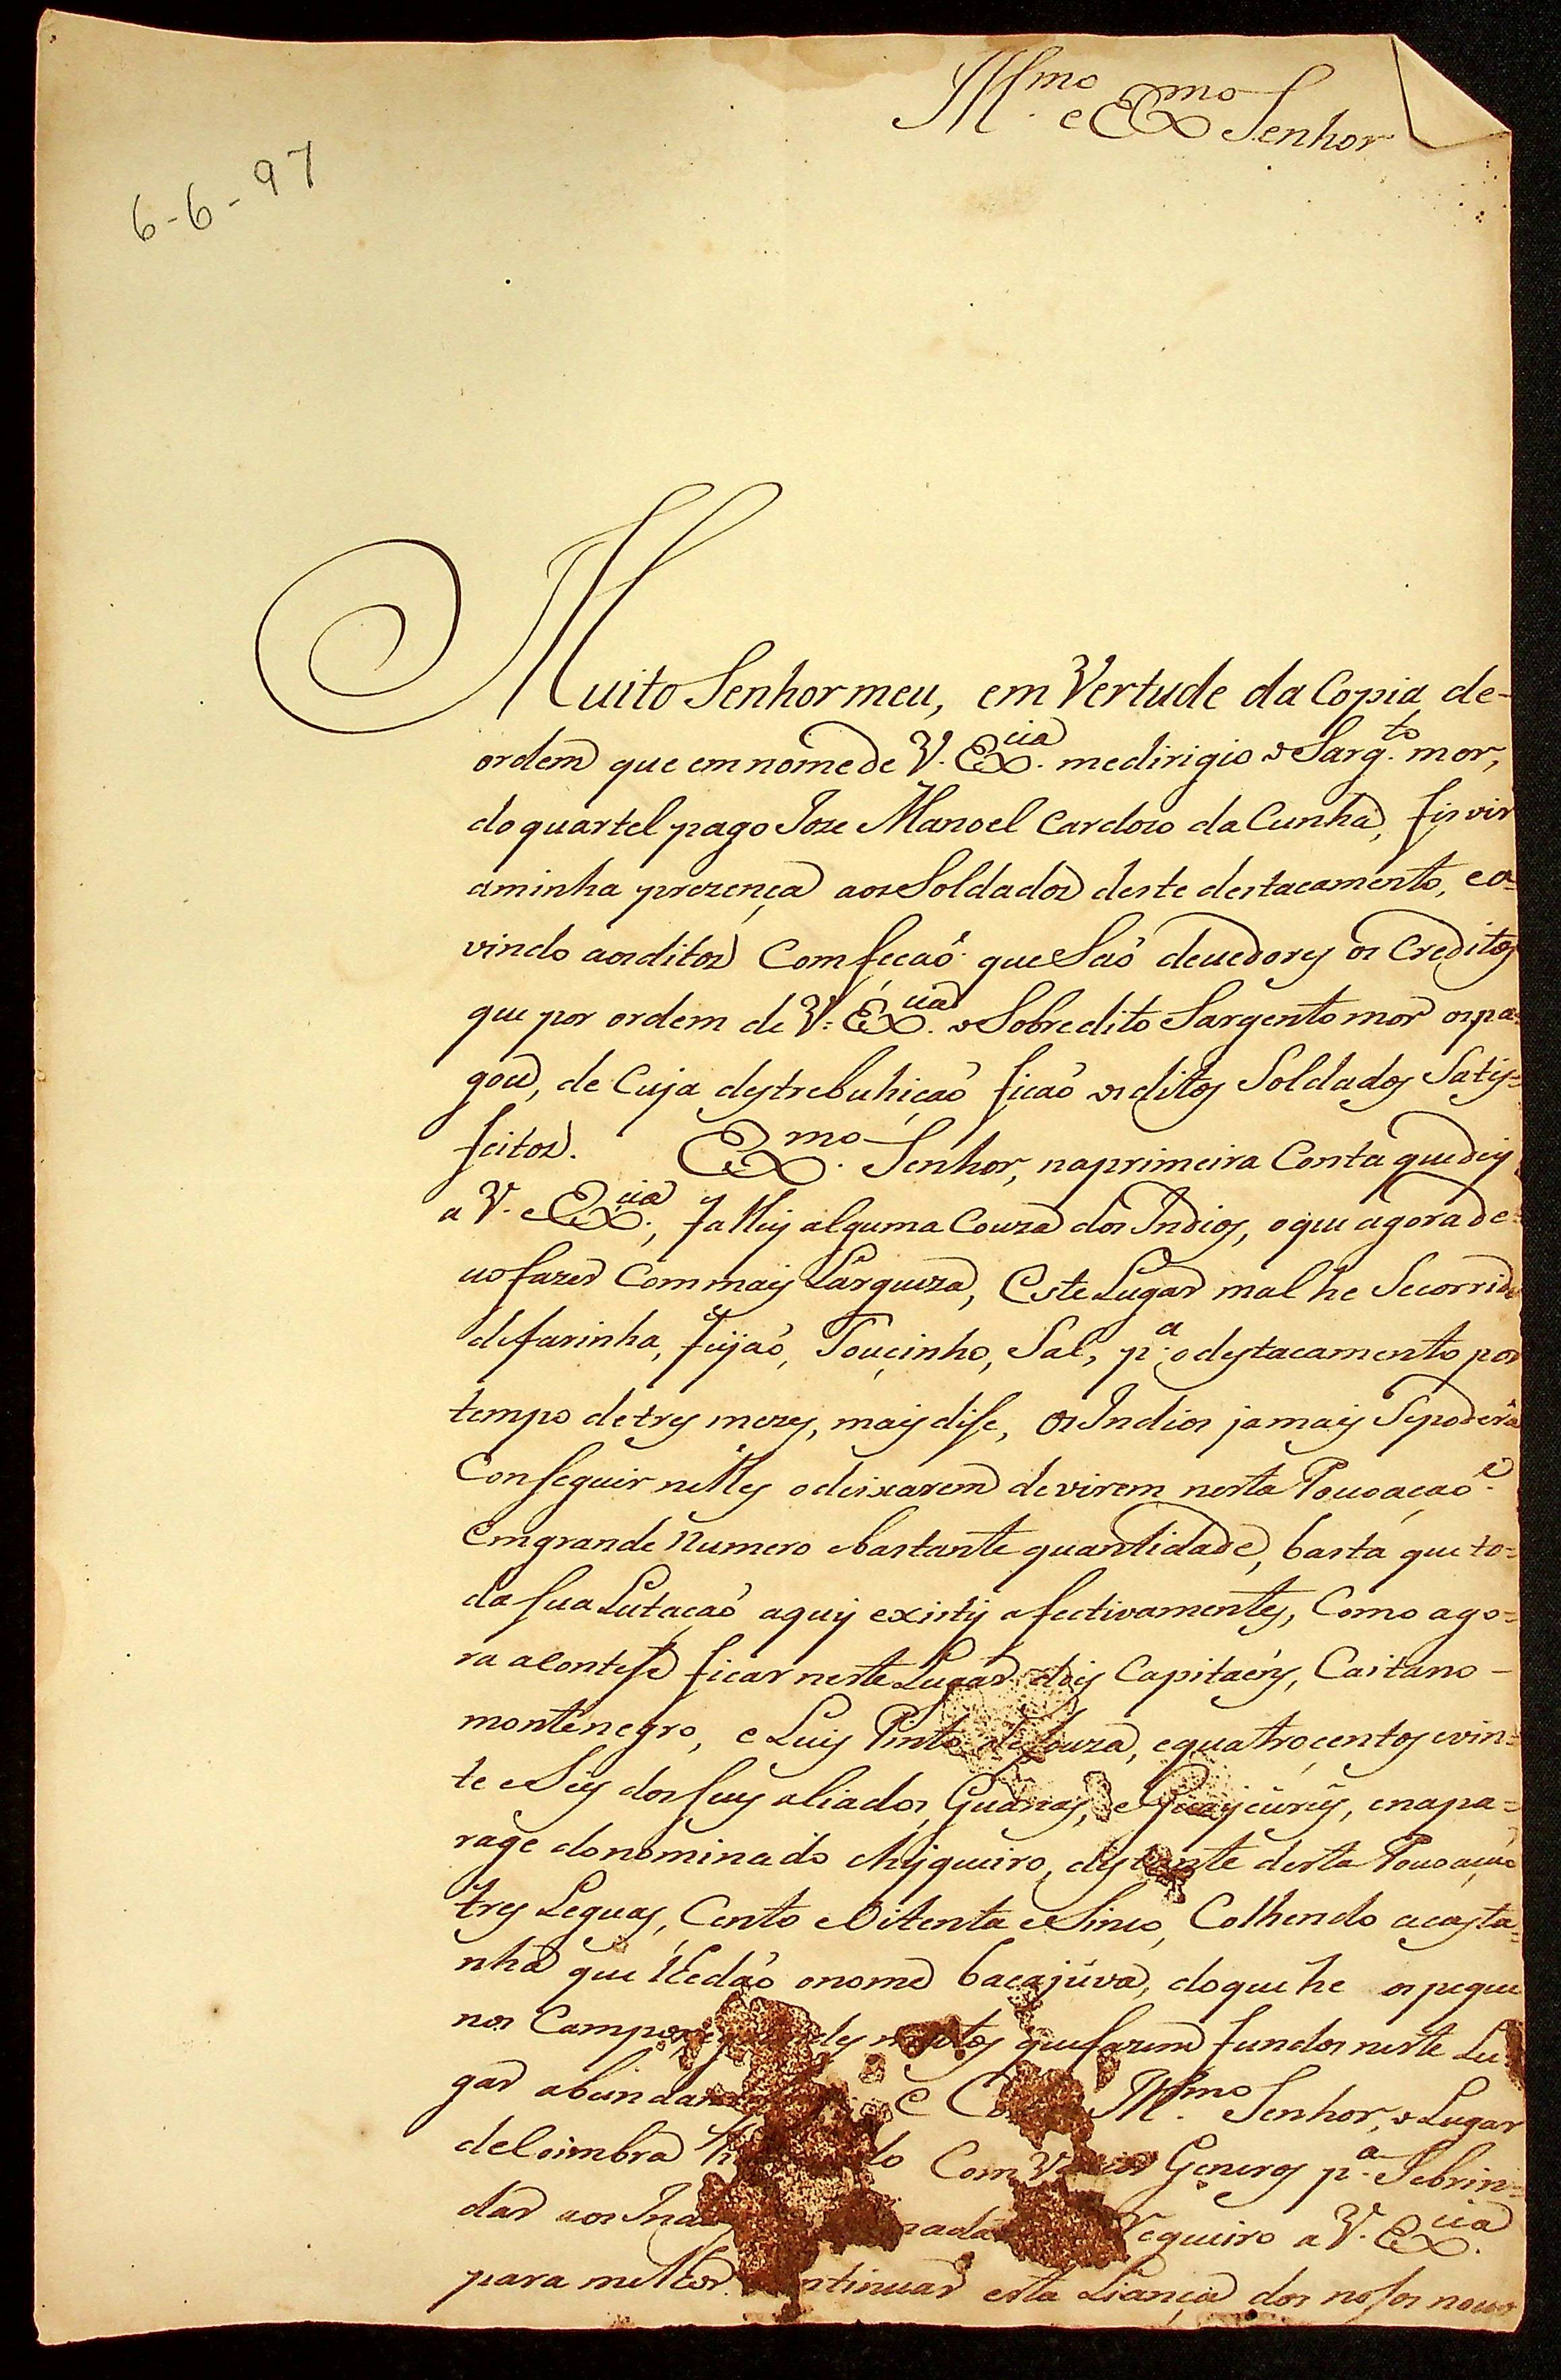 Ill.mo e Ex.mo Senhor
6-6-97
Muito Senhor meu, em Vertude da Copia de-
ordem que em nome de V. Ex.cia me dirigio o Sarg.to mor,
do quartel pago Joze Manoel Cardozo da Cunha, fis vir
aminha prezença aos Soldados deste destacamento, eo-
vindo aos ditos Comfeçaõ que Saõ devedores os Creditos
que por ordem de V. Ex.cia o Sobredito Sargento mor os pa-
gou, de Cuja destrebuhiçaõ ficaõ os ditos Soldados Satis=
feitos. Ex.mo Senhor, na primeira Conta que dey
a V. Ex.cia, falley alguma Couza dos Indios, o que agora de=
vo fazer Com mais Largueza, Este Lugar mal he Secorrido
de farinha, feijaõ, Touçinho, Sal, p.a o destacamento por
tempo de tres mezes, mais dise, os Indios jamais Sepoderá
Conseguir nelles odeixarem devirem nesta Povoaçaõ
em grande Numero ebastante quantidade, basta que to=
da sua Lutaçaõ aquy existy efectivamentes, Como ago=
ra acontese ficar neste Lugar dois Capitaens, Caitano
montenegro, e Luis Pinto de Souza, equatrocentos evin=
te eSeis dos seus aliados, Guanas, e Guaycurûs, enapa=
rage donominado chyqueiro, distante desta Povoaçaõ
tres Leguas, Cento eOitenta eSinco, Colhendo acasta=
nha que lhedaõ onome bacajuva, doque he os peque
nos Campos egrandes mattos que fazem fundos neste Lu=
gar abundan e Ill.mo Senhor, o Lugar
deCoimbra do Com Varios Generos p.a Sebrin=
dar aos nada requeiro a V. Ex.cia
para milhor continuar esta Liança dos nosos novos